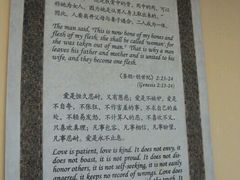 可以称她为女人，因为她是从男人身上取出来的。
因此，人要离开父母与妻子连合，二人成为一体。
The man said, "This is now bone of my bones and
flesh of my flesh; she shall be called 'woman', for
she was taken out of man." That is why a man
leaves his father and mother and is united to his
wife, and they become one flesh.
(圣经·创世纪) 2:23-24
(Genesis 2:23-24)
爱是恒久忍耐，又有恩慈；爱是不嫉妒，爱是
不自夸，不张狂，不作害羞的事，不求自己的益
处，不轻易发怒，不计算人的恶，不喜欢不义，
只喜欢真理；凡事包容，凡事相信，凡事盼望，
凡事忍耐，爱是永不止息。
Love is patient, love is kind. It does not envy, it
does not boast, it is not proud. It does not dis-
honor others, it is not self-seeking, it is not easily
angered, it keeps no record of wrongs. Love does